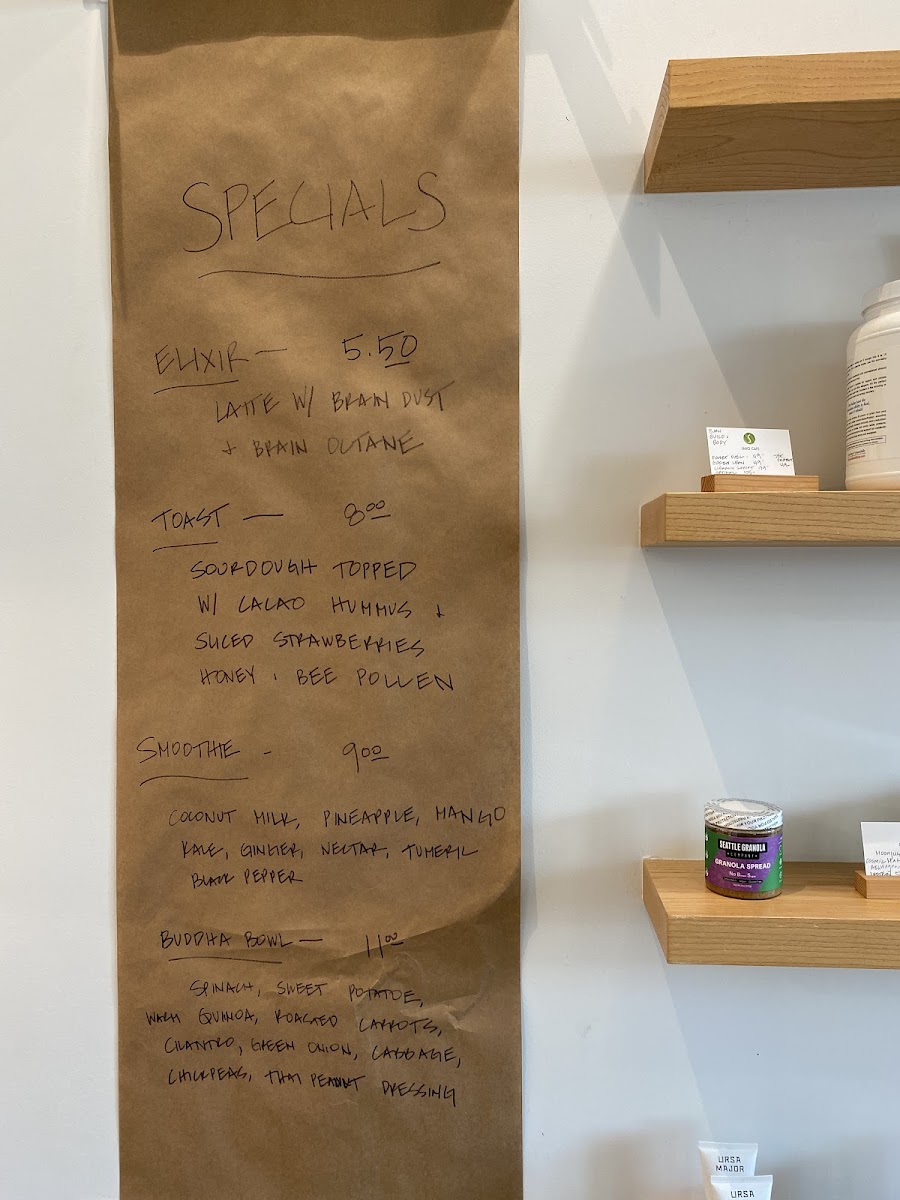 SPECIALS
ELIXIR — 5.50
LATTE W/ BRAIN DUST
+ BRAIN OCTANE
TOAST — 8.00
SOURDOUGH TOPPED
W/ CACAO HUMMUS +
SLICED STRAWBERRIES
HONEY + BEE POLLEN
SMOOTHIE - 9.00
COCONUT MILK, PINEAPPLE, MANGO
KALE, GINGER, NECTAR, TUMERIC
BLACK PEPPER
BUDDHA BOWL — 11.00
SPINACH, SWEET POTATOE,
WARM QUINOA, ROASTED CARROTS,
CILANTRO, GREEN ONION, CABBAGE,
CHICKPEAS, THAI PEANUT DRESSING
SEATTLE GRANOLA
COMPANY
GRANOLA SPREAD
URSA
MAJOR
URSA